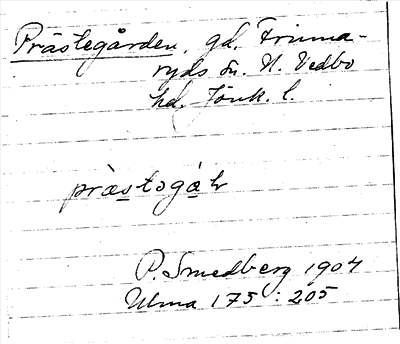 Prästegården, gd, Frinna-
ryds sn. N. Vedbo
hd. Jönk. l.
prästogáḷr
P. Smedberg 1904
Ulma 175 : 205